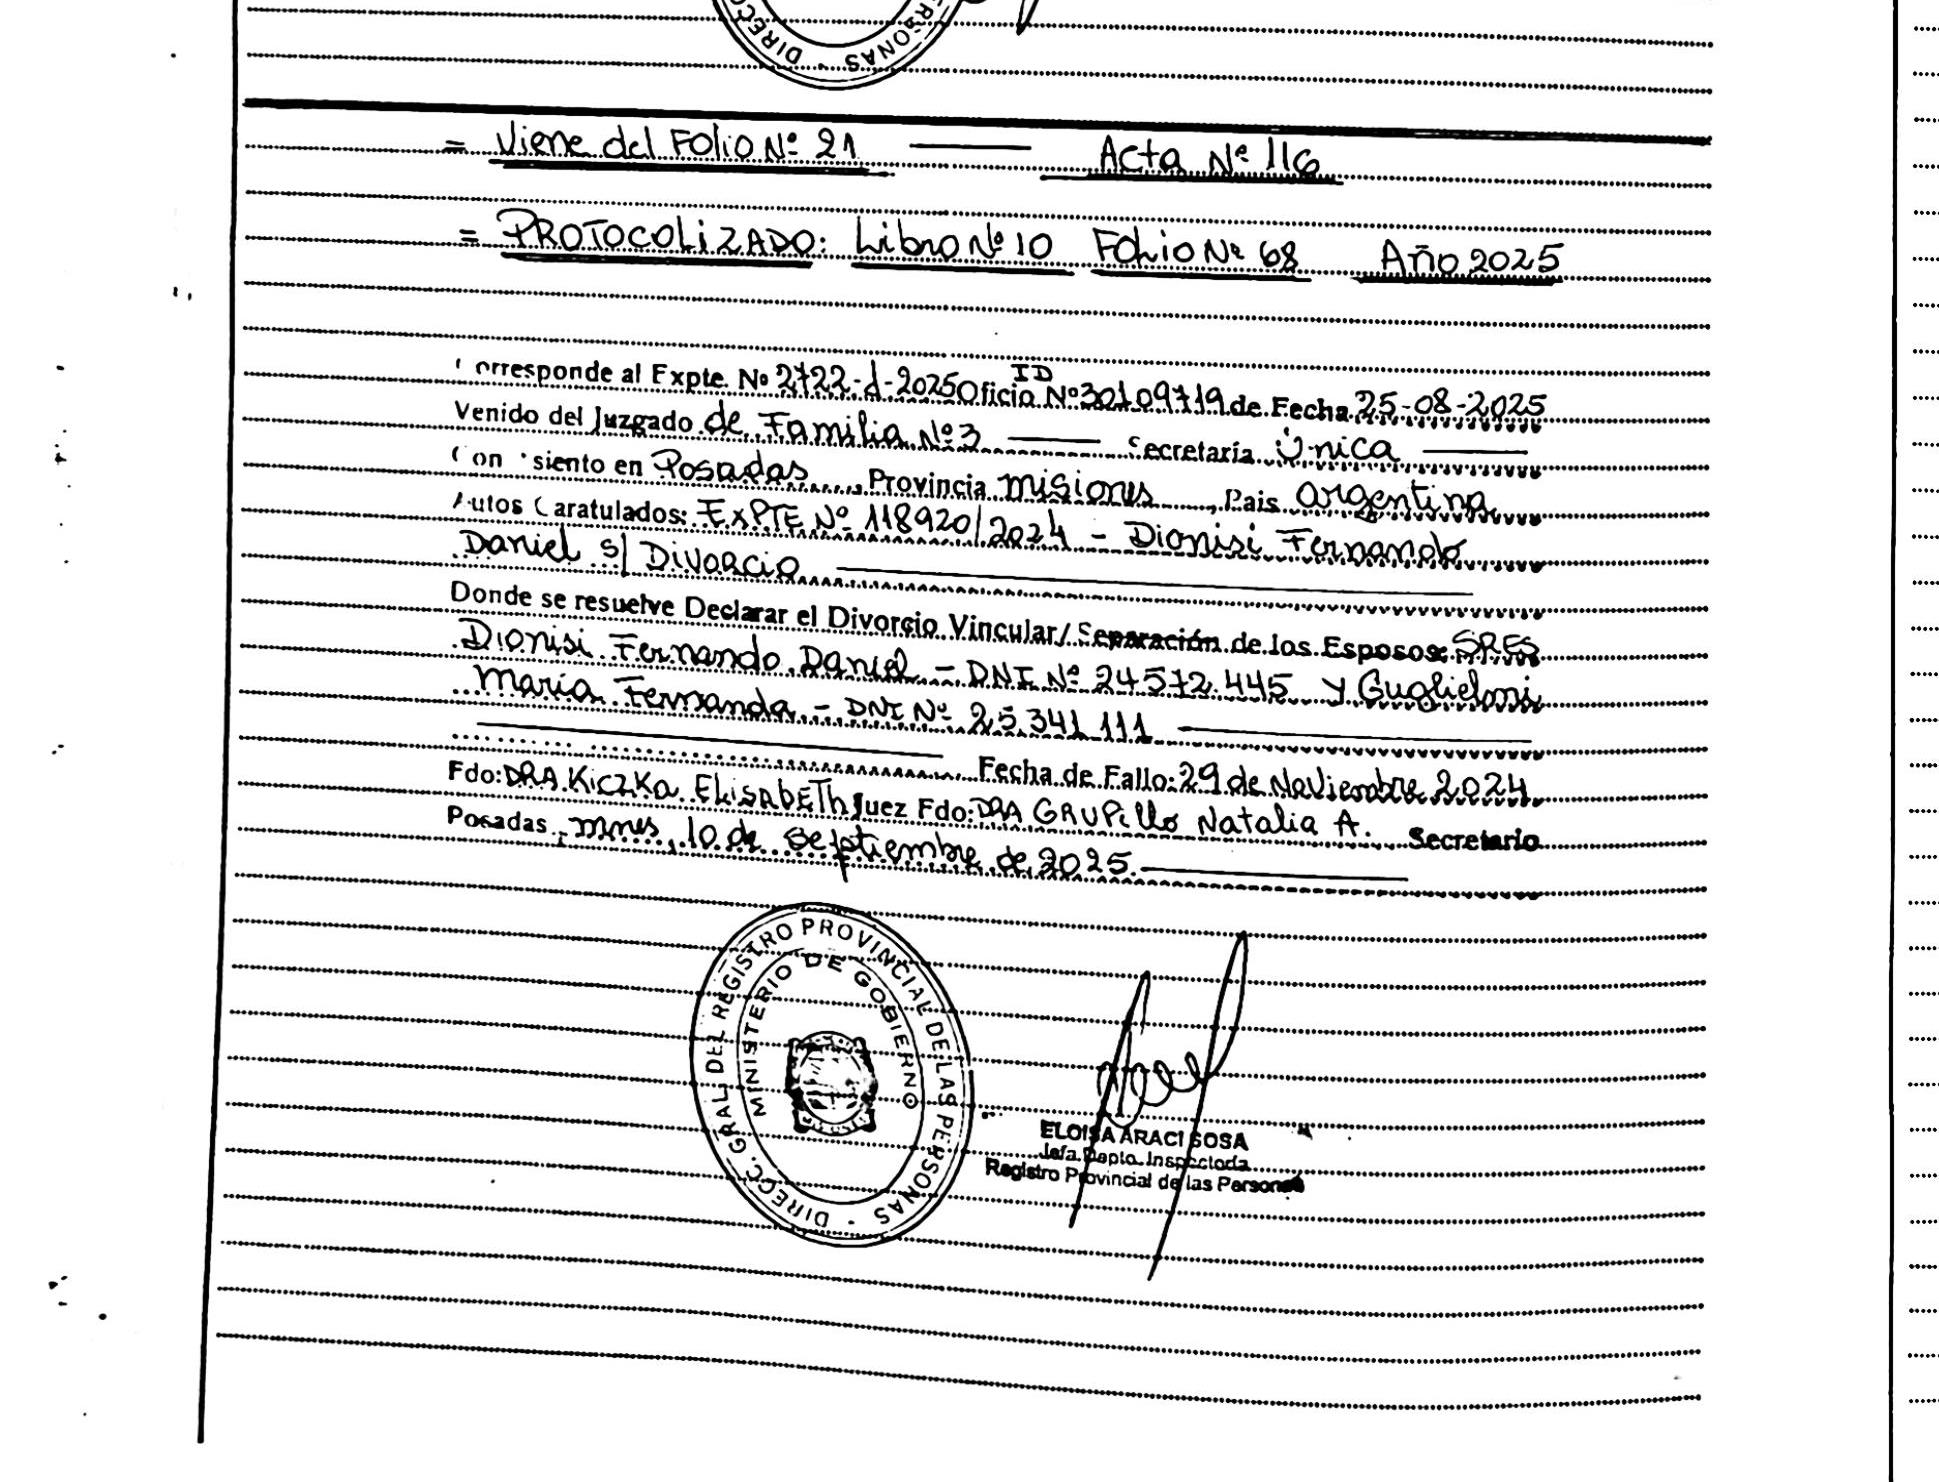 DIRECC · PERSONAS
= Viene del Folio Nº 21 —— Acta Nº 116
= PROTOCOLIZADO: Libro Nº 10 Folio Nº 68 Año 2025
orresponde al Expte. Nº 2722-d-2025 Oficio ID Nº 30109719 de Fecha 25-08-2025
Venido del Juzgado de Familia Nº 3 —— Secretaría Única ——
Con siento en Posadas, Provincia Misiones, Pais Argentina
Autos Caratulados: EXPTE Nº 118920/2024 - Dionisi Fernando
Daniel s/ Divorcio ——
Donde se resuelve Declarar el Divorcio Vincular/ Separación de los Esposos: SRES
Dionisi Fernando Daniel - DNI Nº 24.572.445 y Guglielmi
María Fernanda - DNI Nº 25.341.111 ——
—— Fecha de Fallo: 29 de Noviembre 2024
Fdo: DRA Kiczka Elisabeth Juez Fdo: DRA GRUPillo Natalia A. Secretario
Posadas, mnes, 10 de Septiembre de 2025. ——
DIRECC. GRAL. DEL REGISTRO PROVINCIAL DE LAS PERSONAS
MINISTERIO DE GOBIERNO
ELOISA ARACI SOSA
Jefa Depto. Inspectoda
Registro Provincial de las Personas